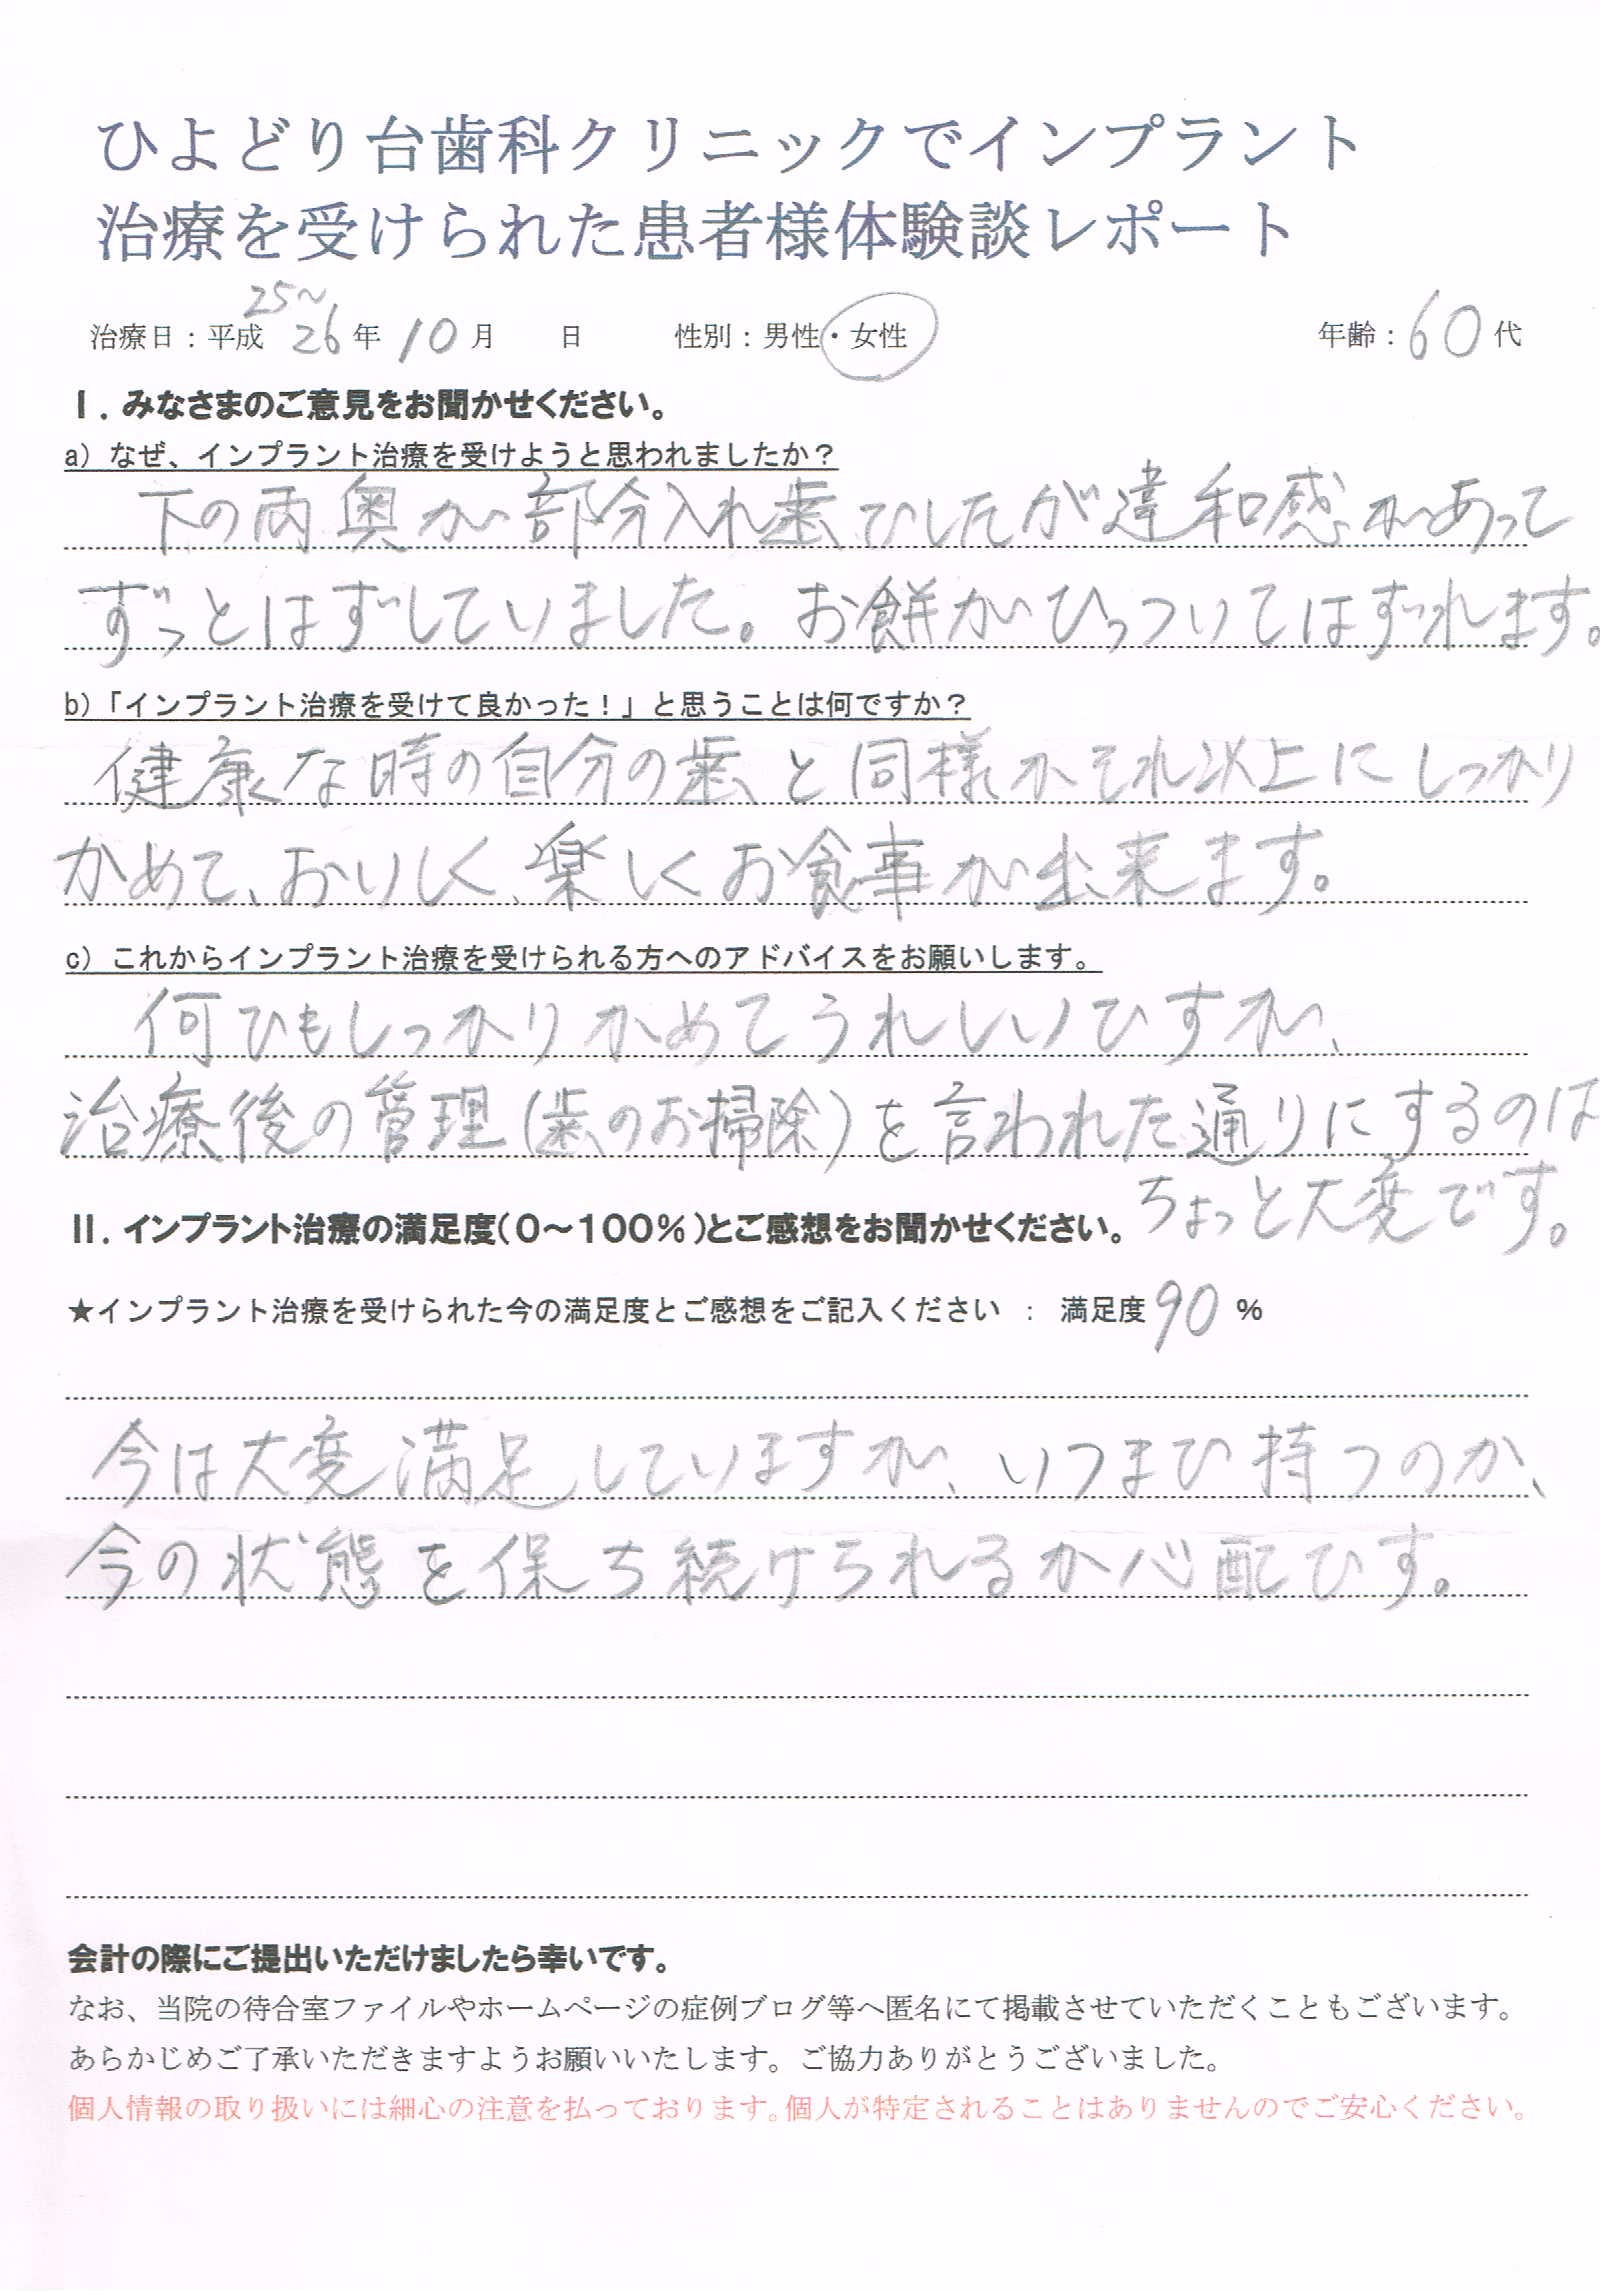 ひよどり台歯科クリニックでインプラント
治療を受けられた患者様体験談レポート
25～
治療日：平成 26 年 10 月 日 性別：男性・女性 年齢：60 代
Ⅰ．みなさまのご意見をお聞かせください。
a）なぜ、インプラント治療を受けようと思われましたか？
下の両奥が部分入れ歯でしたが違和感があって
ずっとはずしていました。お餅がひっついてはずれます。
b）「インプラント治療を受けて良かった！」と思うことは何ですか？
健康な時の自分の歯と同様かそれ以上にしっかり
かめて、おいしく、楽しくお食事が出来ます。
c）これからインプラント治療を受けられる方へのアドバイスをお願いします。
何でもしっかりかめてうれしいですが、
治療後の管理(歯のお掃除)を言われた通りにするのは
ちょっと大変です。
Ⅱ．インプラント治療の満足度（０～１００％）とご感想をお聞かせください。
★インプラント治療を受けられた今の満足度とご感想をご記入ください ： 満足度 90 ％
今は大変満足していますが、いつまで持つのか、
今の状態を保ち続けられるか心配です。
会計の際にご提出いただけましたら幸いです。
なお、当院の待合室ファイルやホームページの症例ブログ等へ匿名にて掲載させていただくこともございます。
あらかじめご了承いただきますようお願いいたします。ご協力ありがとうございました。
個人情報の取り扱いには細心の注意を払っております。個人が特定されることはありませんのでご安心ください。